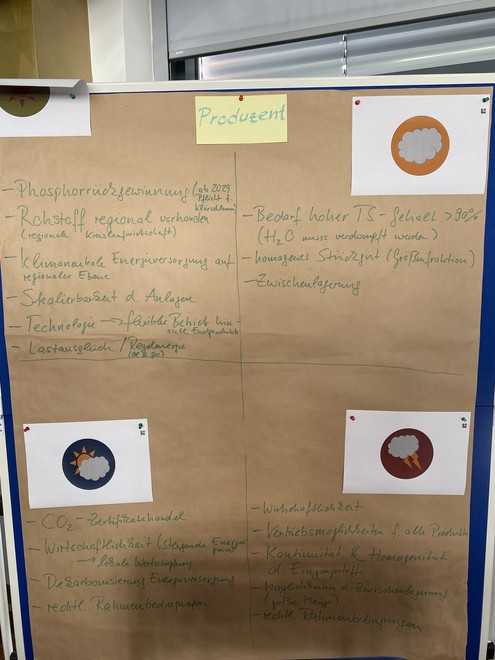 Produzent
- Phosphorrückgewinnung (ab 2029
Pflicht f.
Klärschlamm)
- Rohstoff regional vorhanden
(regionale Kreislaufwirtschaft)
- Klimaneutrale Energieversorgung auf
regionaler Ebene
- Skalierbarkeit d. Anlagen
- Technologie → flexibler Betrieb hin-
Endprodukte
- Lastausgleich / Regelenergie
- Bedarf hoher TS-Gehalt >90%
(H₂O muss verdampft werden)
- homogenes Stückgut (Größenfraktion)
- Zwischenlagerung
- CO₂-Zertifikatehandel
- Wirtschaftlichkeit (steigende Energie-
preise)
→ lokale Wertschöpfung
- Dekarbonisierung Energieversorgung
- rechtl. Rahmenbedingungen
- Wirtschaftlichkeit
- Vertriebsmöglichkeiten f. alle Produkte
- Kontinuität & Homogenität
d. Eingangsstoffe
- Möglichkeiten d. Zwischenlagerung
(große Menge)
- rechtl. Rahmenbedingungen